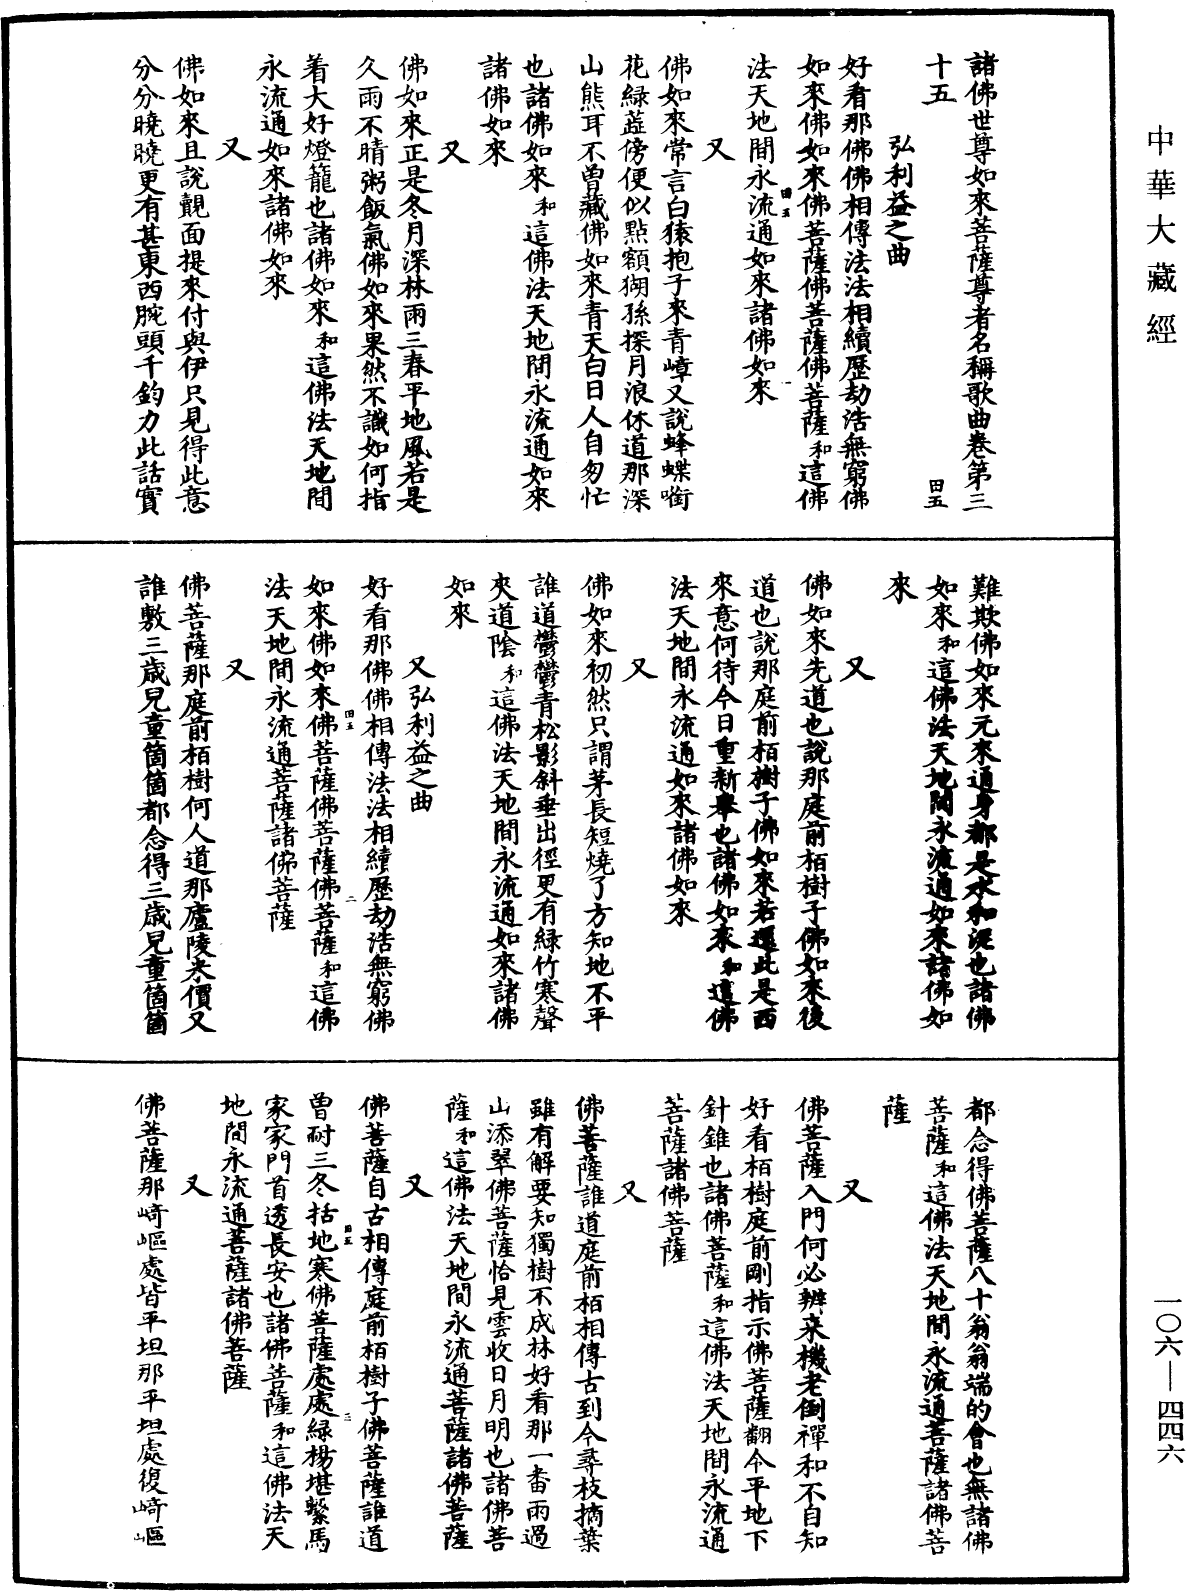 中華大藏經
諸佛世尊如來菩薩尊者名稱歌曲卷第三
十五
田五
弘利益之曲
好看那佛佛相傳法法相續歷劫浩無窮佛
如來佛如來佛菩薩佛菩薩佛菩薩和這佛
法天地間永流通如來諸佛如來
又
佛如來常言白猿抱子來青嶂又說蜂蝶啣
花綠蕋傍便似點額猢孫探月浪休道那深
山熊耳不曾藏佛如來青天白日人自匆忙
也諸佛如來和這佛法天地間永流通如來
諸佛如來
又
佛如來正是冬月深林雨三春平地風若是
久雨不晴粥飯氣佛如來果然不識如何指
着大好燈籠也諸佛如來和這佛法天地間
永流通如來諸佛如來
又
佛如來且說覿面提來付與伊只見得此意
分分曉曉更有甚東西腕頭千鈞力此話實
難欺佛如來元來通身都是水和泥也諸佛
如來和這佛法天地間永流通如來諸佛如
來
又
佛如來先道也說那庭前栢樹子佛如來後
道也說那庭前栢樹子佛如來若還此是西
來意何待今日重新舉也諸佛如來和這佛
法天地間永流通如來諸佛如來
又
佛如來初然只謂茅長短燒了方知地不平
誰道鬱鬱青松影斜垂出徑更有綠竹寒聲
夾道陰和這佛法天地間永流通如來諸佛
如來
又弘利益之曲
好看那佛佛相傳法法相續歷劫浩無窮佛
如來佛如來佛菩薩佛菩薩佛菩薩和這佛
法天地間永流通菩薩諸佛菩薩
又
佛菩薩那庭前栢樹何人道那廬陵米價又
誰敷三歲兒童箇箇都念得三歲兒童箇箇
都念得佛菩薩八十翁翁端的會也無諸佛
菩薩和這佛法天地間永流通菩薩諸佛菩
薩
又
佛菩薩入門何必辨来機老倒禪和不自知
好看栢樹庭前剛指示佛菩薩翻令平地下
針錐也諸佛菩薩和這佛法天地間永流通
菩薩諸佛菩薩
又
佛菩薩誰道庭前栢相傳古到今尋枝摘葉
雖有解要知獨樹不成林好看那一番雨過
山添翠佛菩薩恰見雲收日月明也諸佛菩
薩和這佛法天地間永流通菩薩諸佛菩薩
又
佛菩薩自古相傳庭前栢樹子佛菩薩誰道
曾耐三冬括地寒佛菩薩處處綠楊堪繫馬
家家門首透長安也諸佛菩薩和這佛法天
地間永流通菩薩諸佛菩薩
又
佛菩薩那崎嶇處皆平坦那平坦處復崎嶇
一〇六—四四六